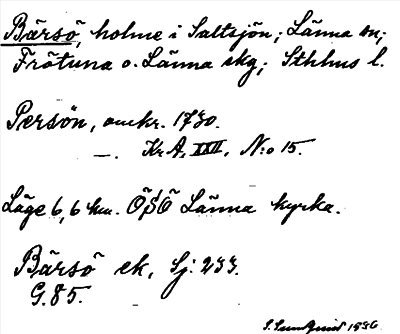 Bärsö, holme i Saltsjön; Länna sn;
Frötuna o. Länna skg; Sthlms l.
Persön, omkr. 1730.
—. Kr.A. XXII, N:o 15.
Läge 6,6 km. ÖSÖ Länna kyrka.
Bärsö ek, Sj: 233.
G. 85.
S. Lundquist 1936